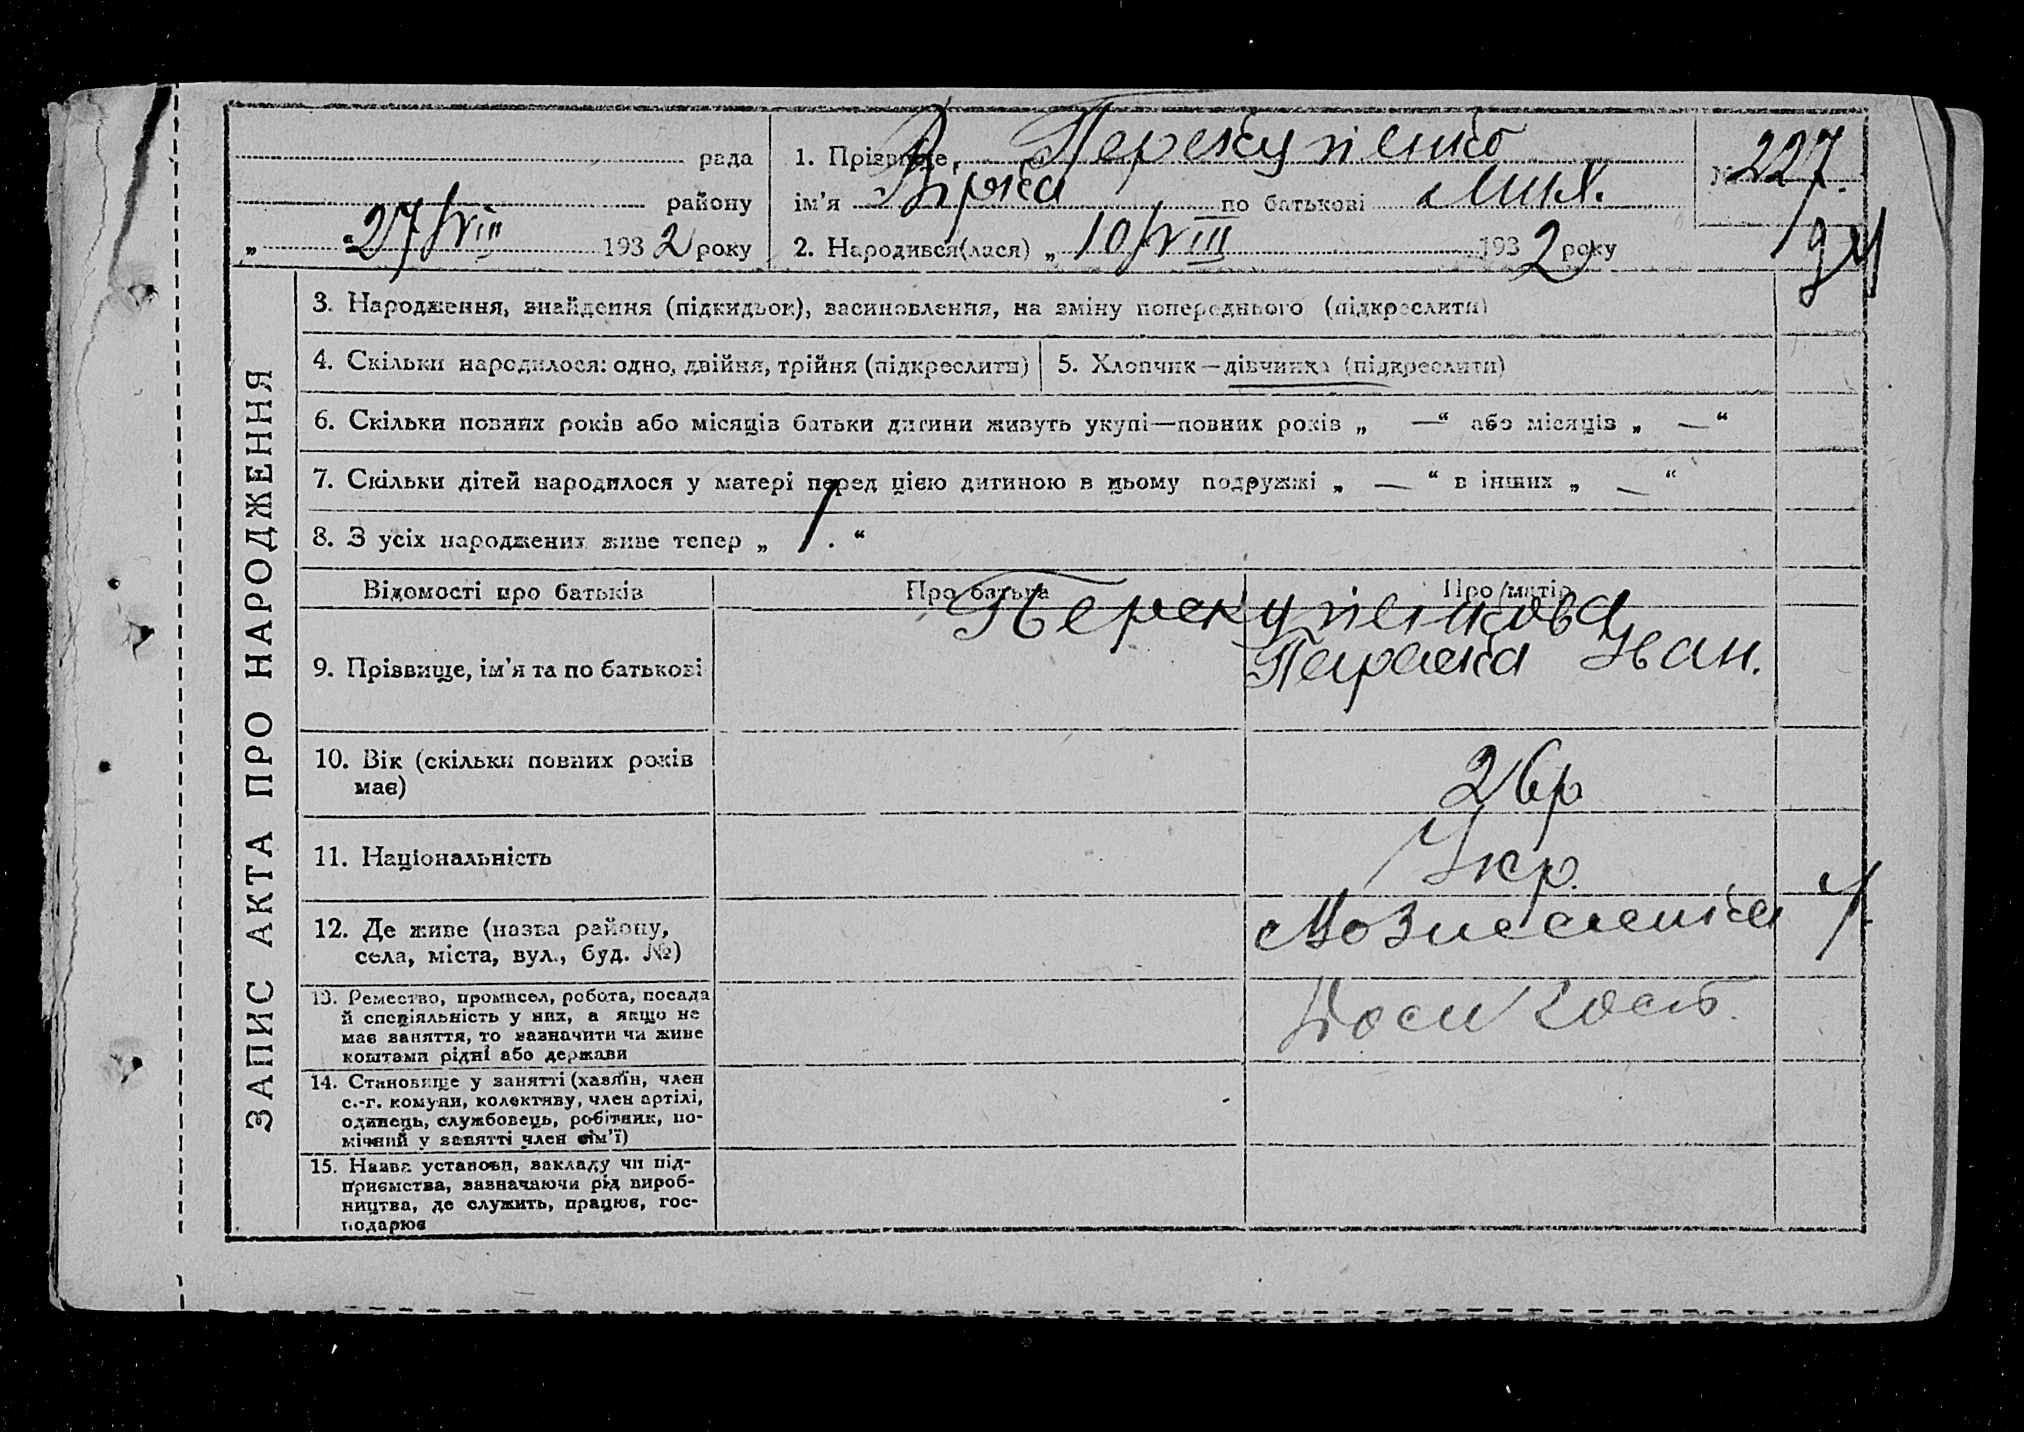 рада
району
„ 27/VIII 1932 року
1. Прізвище, Перекупенко
ім'я Вірка по батькові Мих.
2. Народився(лася) „ 10/VIII 1932 року
227.
ЗАПИС АКТА ПРО НАРОДЖЕННЯ
3. Народження, знайдення (підкидьок), засиновлення, на зміну попереднього (підкреслити)
4. Скільки народилося: одно, двійня, трійня (підкреслити)
5. Хлопчик—дівчинка (підкреслити)
6. Скільки повних років або місяців батьки дитини живуть укупі—повних років „ —“ або місяців „ —“
7. Скільки дітей народилося у матері перед цією дитиною в цьому подружжі „ — “ в інших „ — “
8. З усіх народжених живе тепер „ 1. “
Відомості про батьків
Про батька
Про матір
9. Прізвище, ім'я та по батькові
Перекупенкова
Параска Іван.
10. Вік (скільки повних років
має)
26р
11. Національність
Укр.
12. Де живе (назва району,
села, міста, вул., буд. №)
Вознесенка
13. Ремество, промисел, робота, посада
й спеціяльність у них, а якщо не
має заняття, то зазначити чи живе
коштами рідні або держави
Дом госп.
14. Становище у занятті (хазяїн, член
с.-г. комуни, колективу, член артілі,
одинець, службовець, робітник, по-
мічний у занятті член сім'ї)
15. Назва установи, закладу чи під-
приємства, зазначаючи рід вироб-
ництва, де служить, працює, гос-
подарює